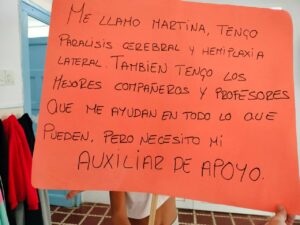 ME LLAMO MARTINA, TENGO
PARALISIS CEREBRAL Y HEMIPLAXIA
LATERAL. TAMBIEN TENGO LOS
MEJORES COMPAÑEROS Y PROFESORES
QUE ME AYUDAN EN TODO LO QUE
PUEDEN, PERO NECESITO MI
AUXILIAR DE APOYO.